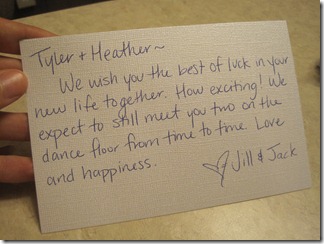 Tyler + Heather~
We wish you the best of luck in your
new life together. How exciting! We
expect to still meet you two on the
dance floor from time to time. Love
and happiness.
♡ Jill & Jack